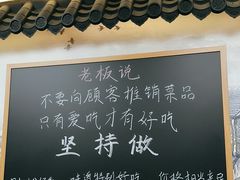 老板说
不要向顾客推销菜品
只有爱吃才有好吃
坚持做
味道特别好吃